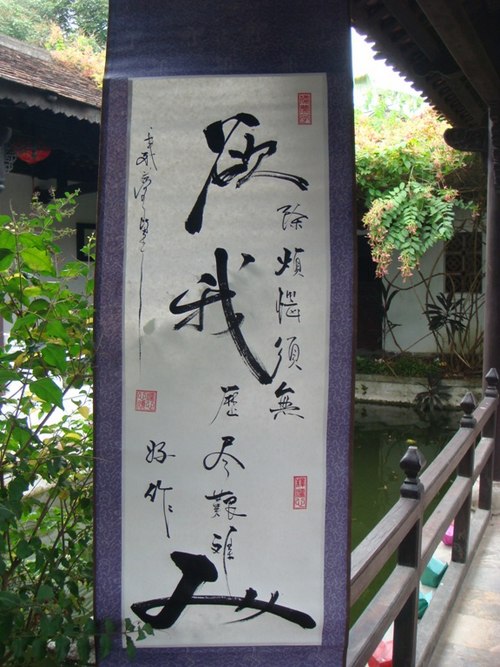 欲
除煩惱須無
我
歷尽艱難
好作
人